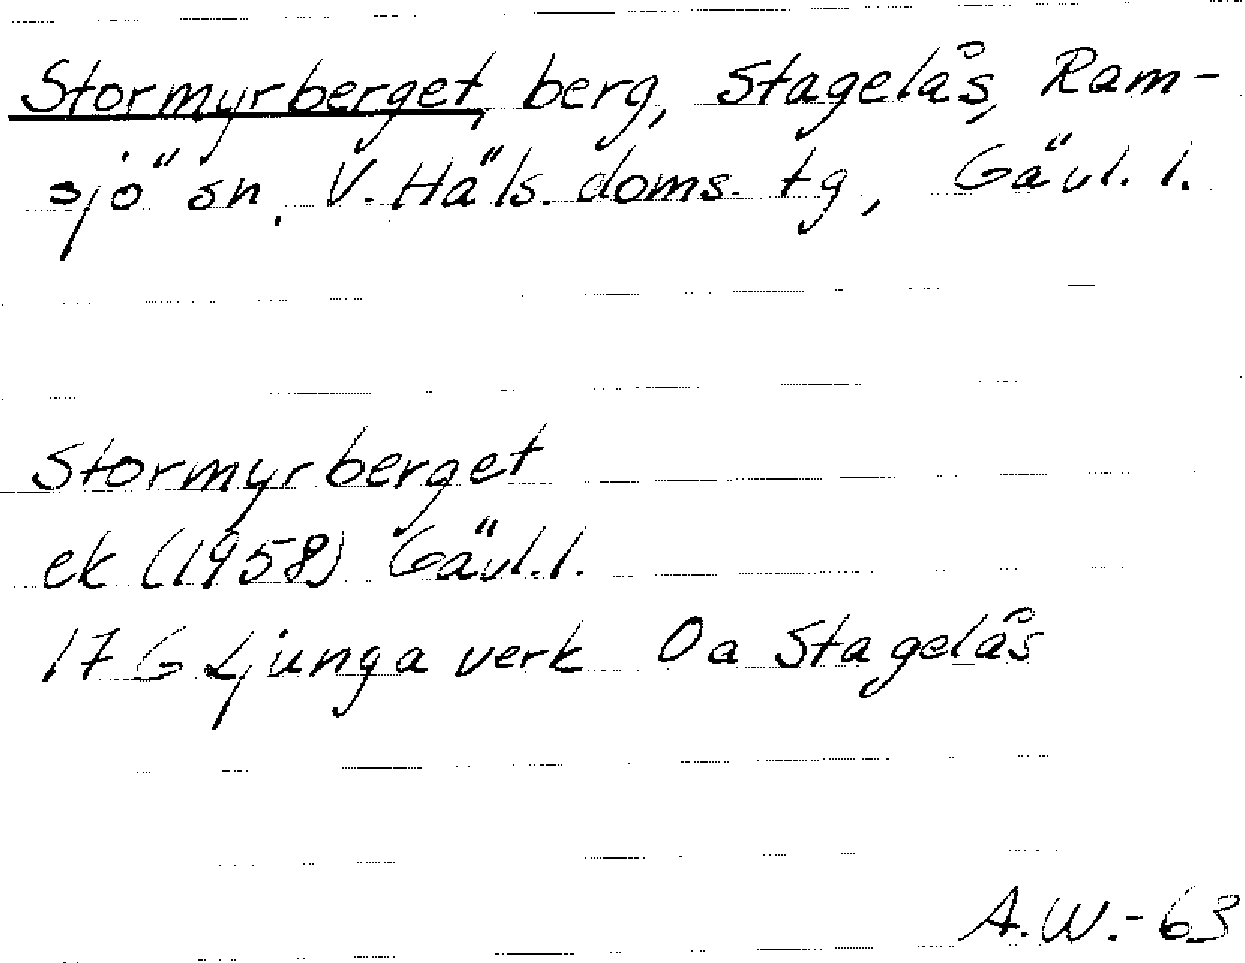 Stormyrberget, berg, Stagelås, Ram-
sjö sn, V. Häls. doms. tg, Gävl. l.
Stormyrberget
ek (1958) Gävl. l.
17 G Ljunga verk Oa Stagelås
A.W.-63